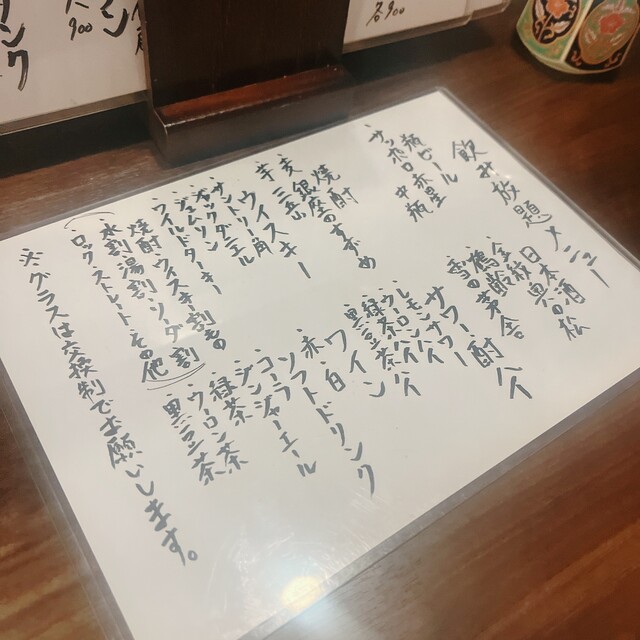 飲み放題メニュー
瓶ビール
サッポロ黒星 中瓶
焼酎
麦 銀座のすずめ
芋 三岳
ウイスキー
サントリー角
ジャックダニエル
ジムビーム
ワイルドターキー
焼酎・ウィスキー割もの
(水割・湯割・ソーダ割
ロック・ストレート・その他)
日本酒
全線 奥の松
應幹 茅舎
雪の
サワー・酎ハイ
レモンサワー
ウーロンハイ
緑茶ハイ
黒豆茶ハイ
ワイン
赤 白
ソフトドリンク
コーラ
ジンジャーエール
緑茶
ウーロン茶
黒豆茶
※グラスは交換制でお願いします。
各900
900